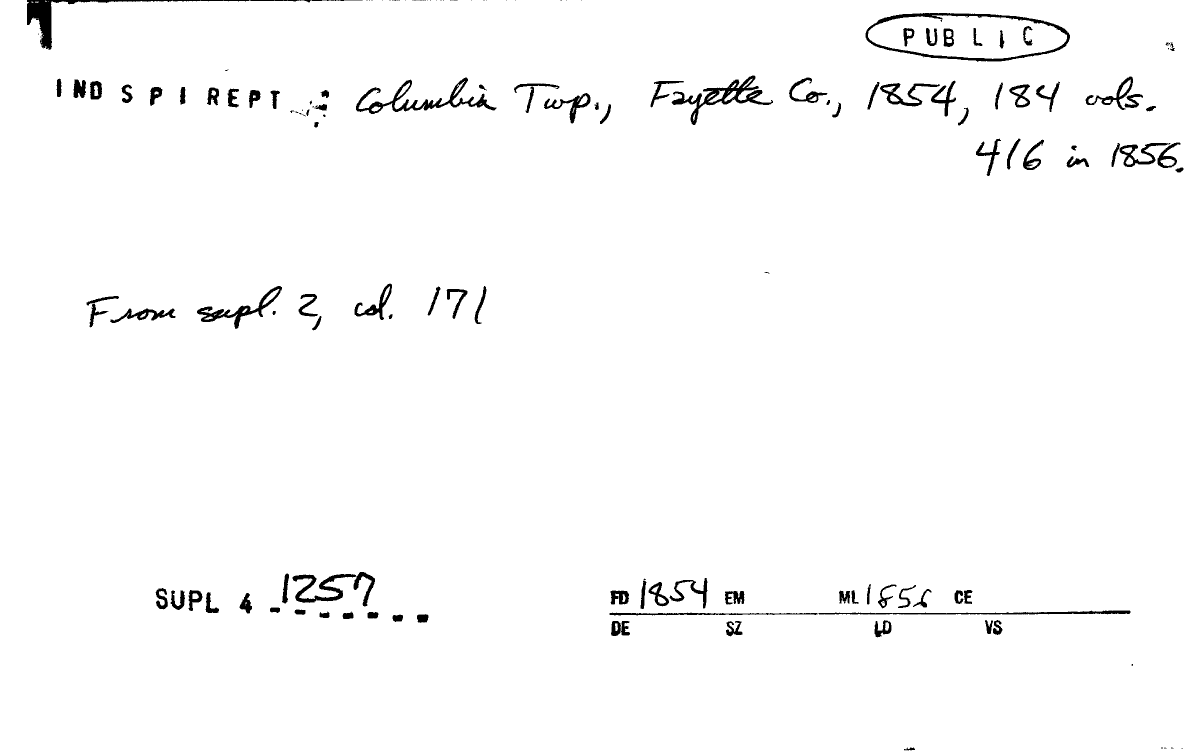 PUBLIC
IND SPI REPT : Columbia Twp., Fayette Co., 1854, 184 vols.
416 in 1856.
From supl. 2, col. 171
SUPL 4 1257
FD 1854 EM ML 1856 CE
DE SZ LD VS